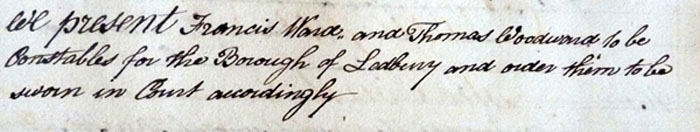 We present Francis Ward, and Thomas Woodward to be
Constables for the Borough of Ledbury and order them to be
sworn in Court accordingly